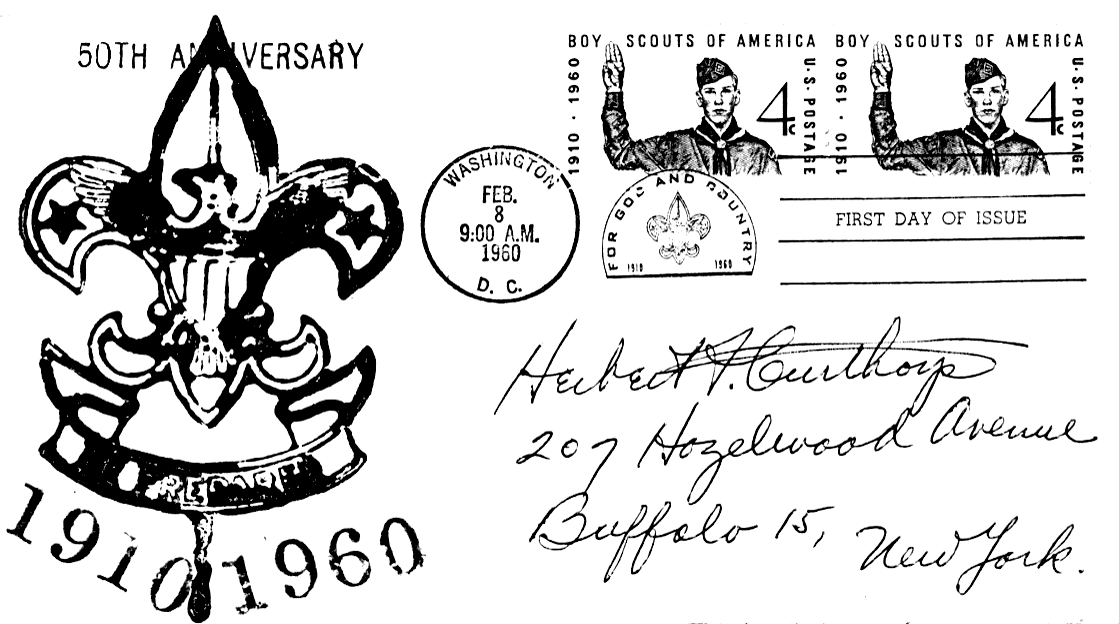 50TH ANNIVERSARY
BOY SCOUTS OF AMERICA
1910 · 1960
4c
U·S·POSTAGE
BOY SCOUTS OF AMERICA
1910 · 1960
4c
U·S·POSTAGE
WASHINGTON
FEB.
8
9:00 A.M.
1960
D. C.
FOR GOD AND COUNTRY
1910 1960
FIRST DAY OF ISSUE
Herbert F. Curthoys
207 Hazelwood Avenue
Buffalo 15, New York.
1910 1960